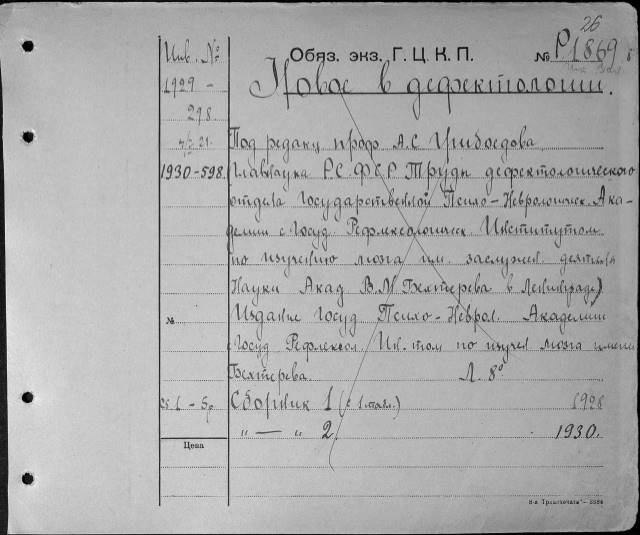 26
Инв. №
Обяз. экз. Г. Ц. К. П. № Р1869
1929 -
298.
Новое в дефектологии.
Под редакц проф А.С Грибоедова
1930-598.
(Главнаука Р.С.Ф.С.Р. Труды дефектологического
отдела Государственной Психо-Неврологическ. Ака-
демии с Госуд Рефлексологическ. Институтом
по изучению мозга им. заслужен. деятеля
Науки Акад В.М Бехтерева в Ленинграде)
№ Издание Госуд Психо-Неврол. Академии
с Госуд Рефлексол. Ин.том по изучен мозга имени
Бехтерева. Л. 8°
Сборник 1 (с 1 табл.) 1928
" — " 2. 1930.
Цена